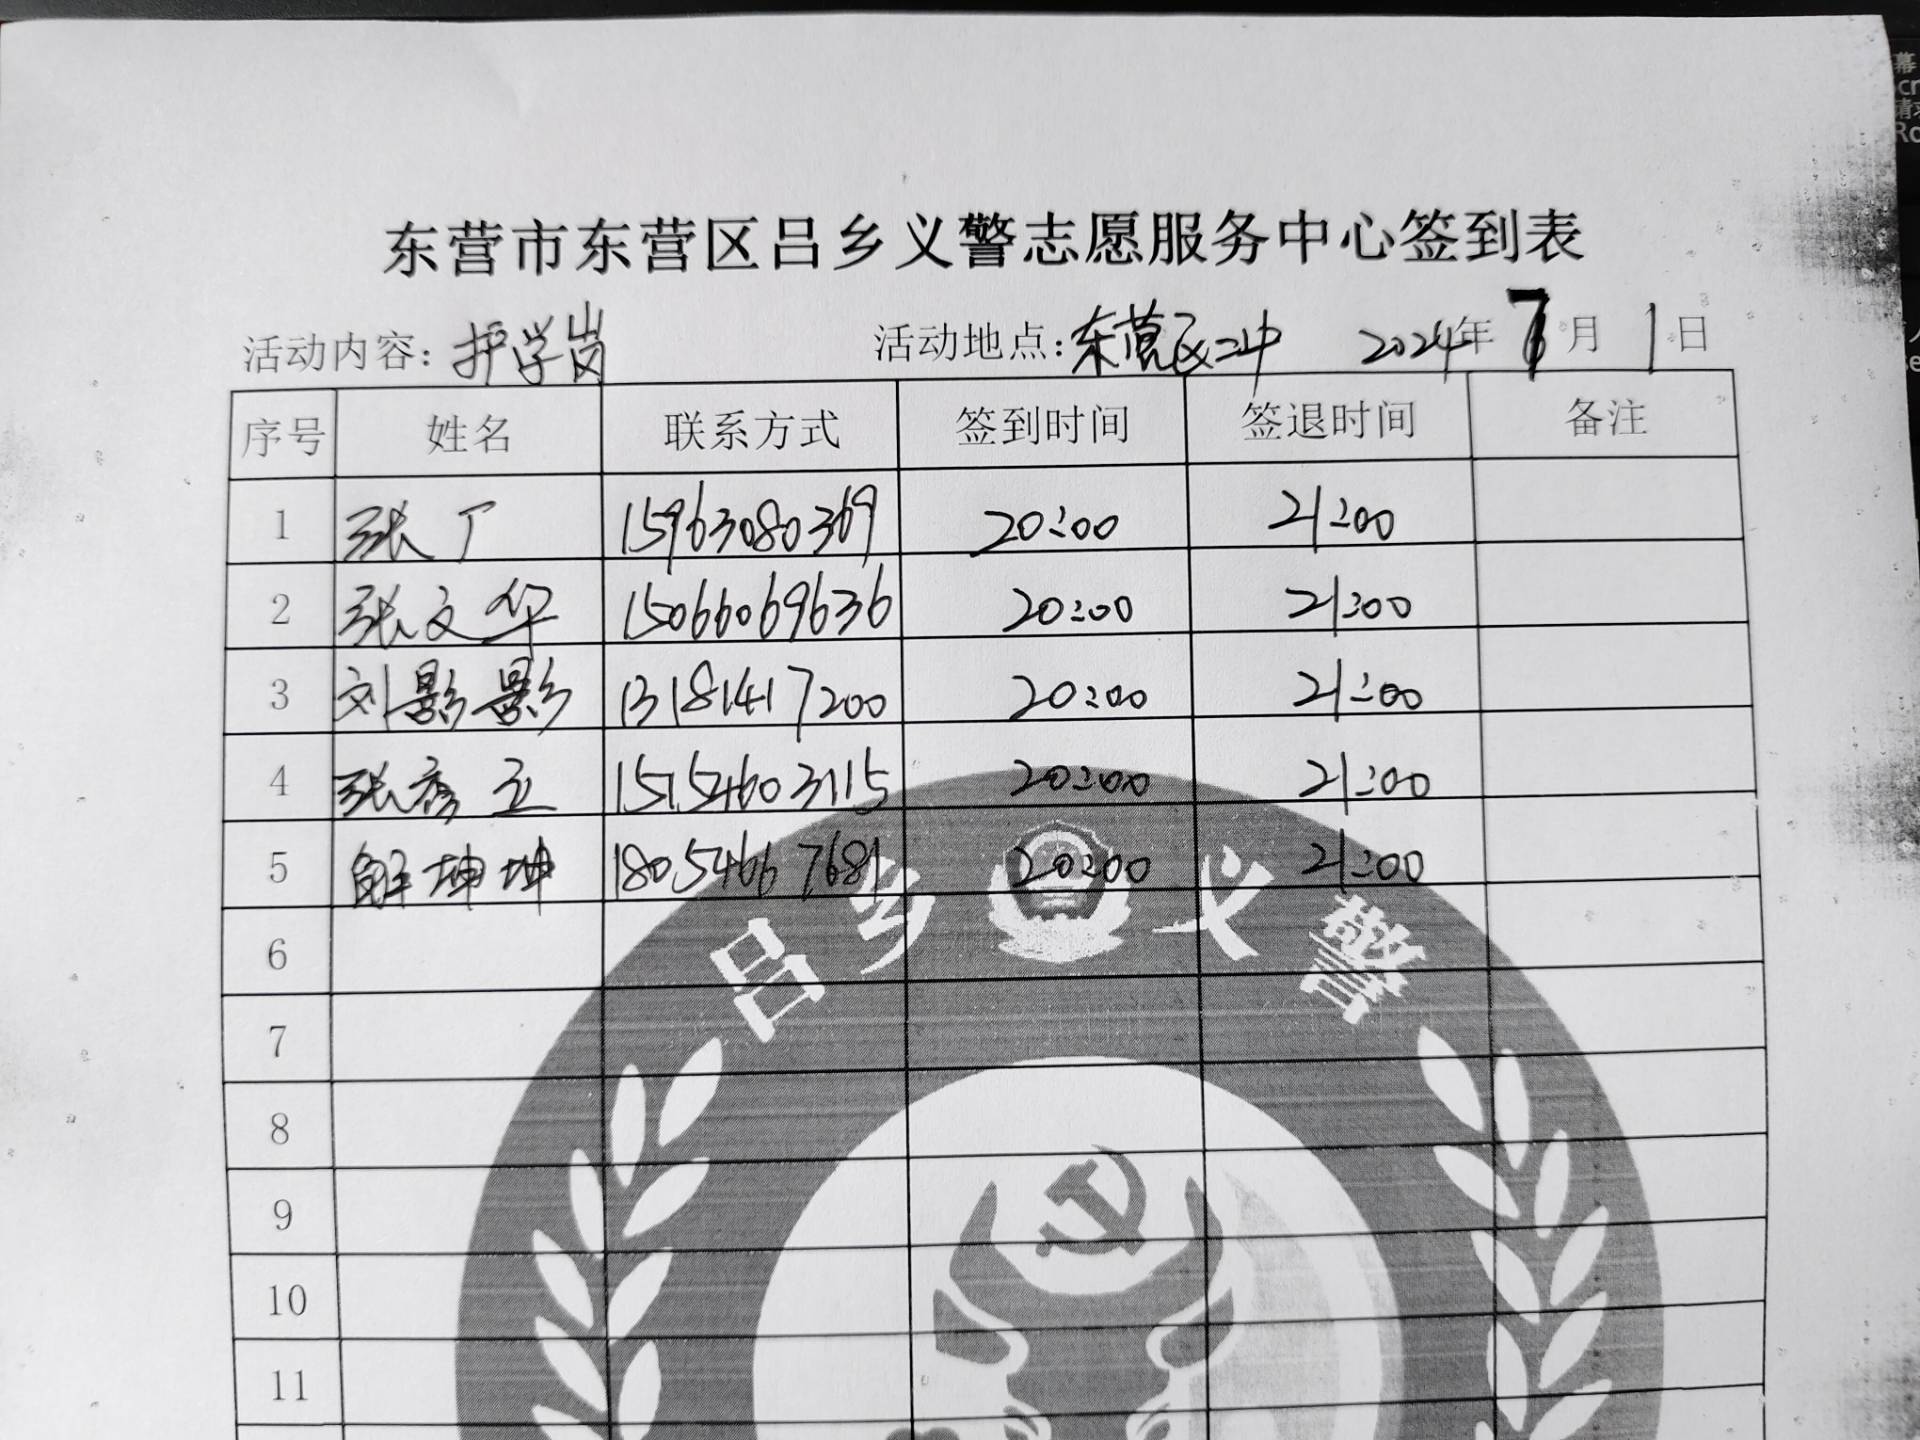 东营市东营区吕乡义警志愿服务中心签到表
活动内容：护学岗 活动地点：东营区二中 2024年 7月 1日
序号 姓名 联系方式 签到时间 签退时间 备注
1 张广 15963080369 20:00 21:00
2 张文华 15066069636 20:00 21:00
3 刘影影 13181417200 20:00 21:00
4 张彦立 15154603115 20:00 21:00
5 解坤坤 18054667681 20:00 21:00
吕乡义警
6
7
8
9
10
11